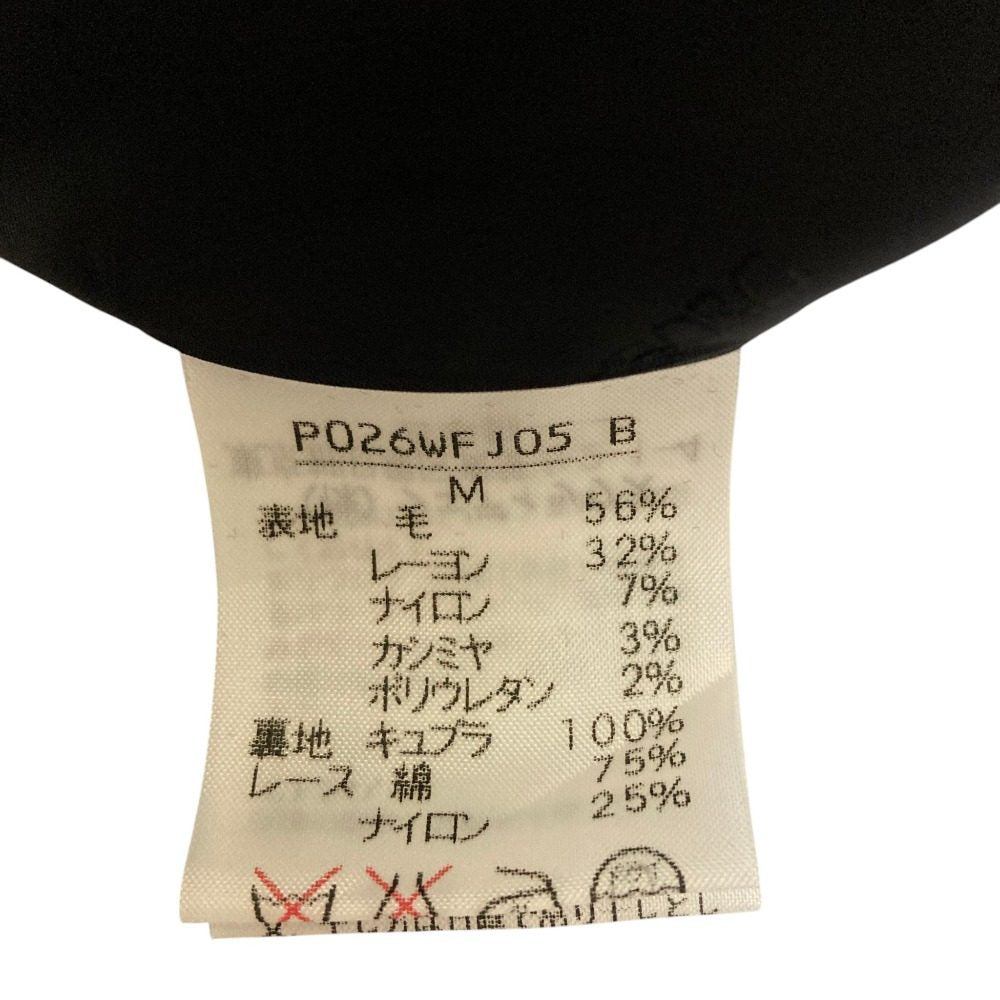 P026WFJ05 B
M
表地 毛 56%
レーヨン 32%
ナイロン 7%
カシミヤ 3%
ポリウレタン 2%
裏地 キュプラ 100%
レース 綿 75%
ナイロン 25%